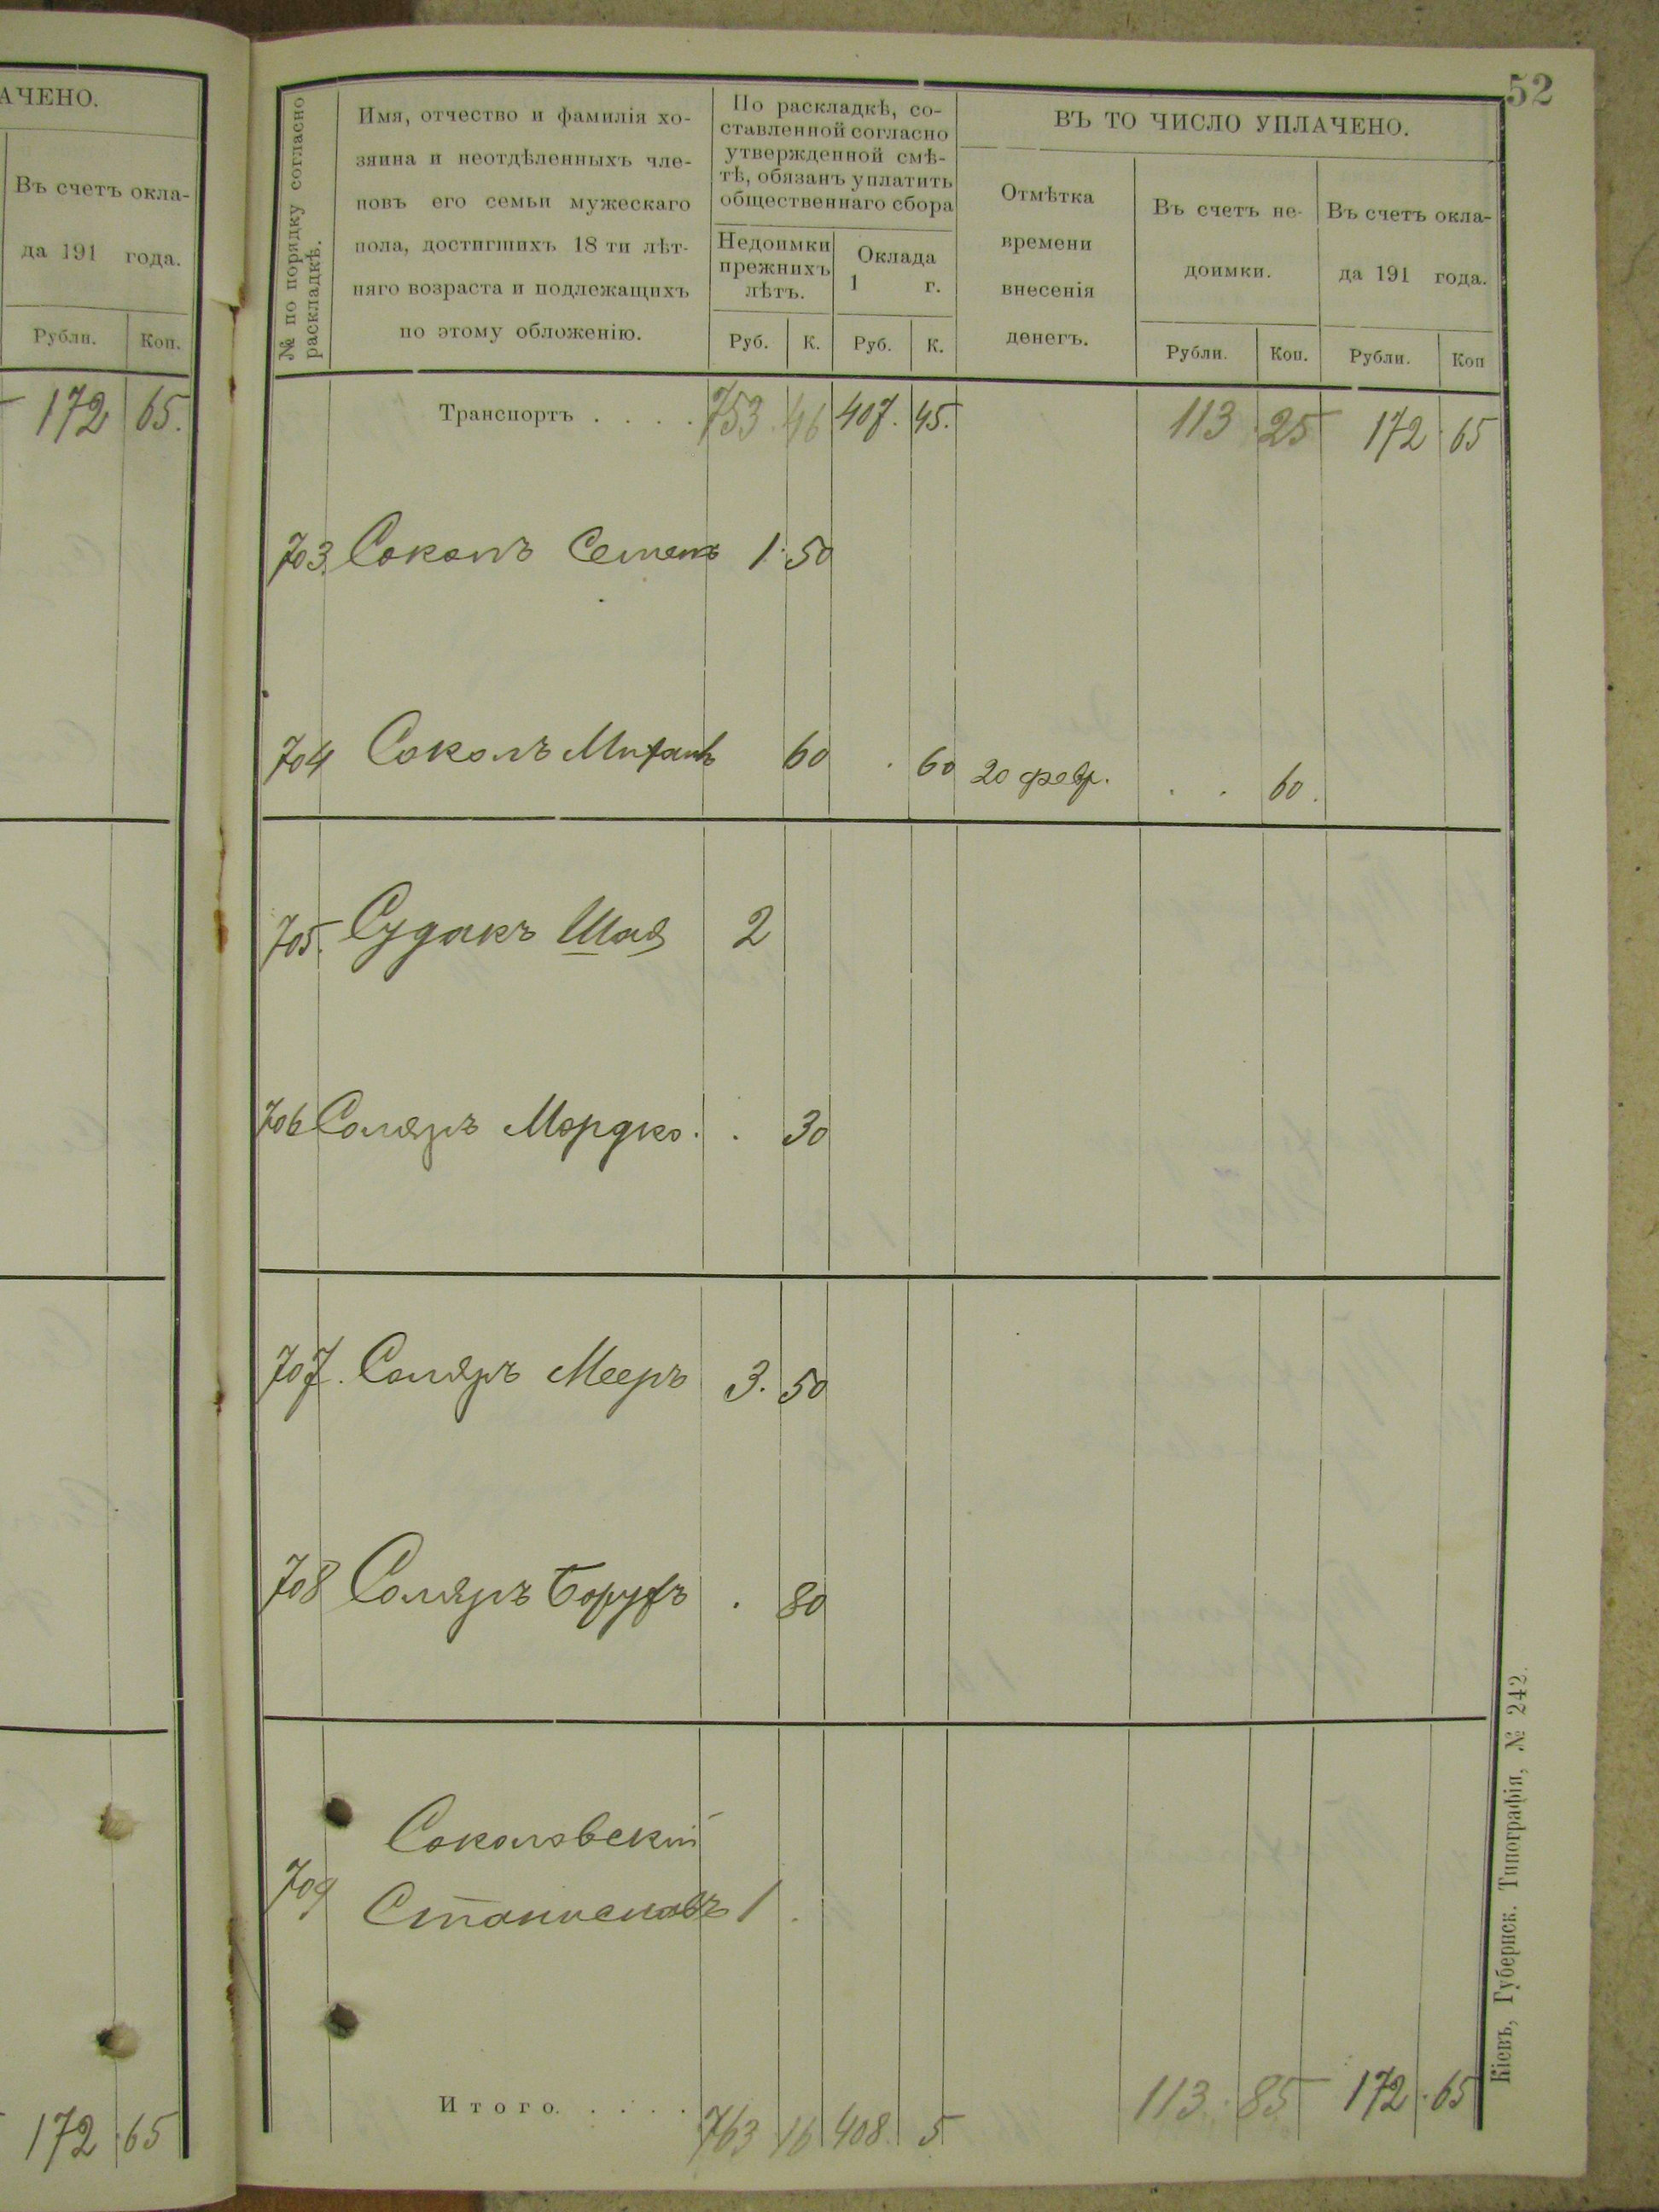 АЧЕНО.
Въ счетъ окла-
да 191 года.
Рубли. Коп.
172 65.
172 65
52
№ по порядку согласно
раскладкѣ.
Имя, отчество и фамилія хо-
зяина и неотдѣленныхъ чле-
новъ его семьи мужескаго
пола, достигшихъ 18 ти лѣт-
няго возраста и подлежащихъ
по этому обложенію.
По раскладкѣ, со-
ставленной согласно
утвержденной смѣ-
тѣ, обязанъ уплатить
общественнаго сбора
Недоимки
прежнихъ
лѣтъ.
Оклада
1 г.
Руб. К. Руб. К.
ВЪ ТО ЧИСЛО УПЛАЧЕНО.
Отмѣтка
времени
внесенія
денегъ.
Въ счетъ не-
доимки.
Въ счетъ окла-
да 191 года.
Рубли. Коп. Рубли. Коп
Транспортъ . . . . 753. 46 407. 45. 113 25 172 65
703. Соколъ Семенъ 1. 50
704 Соколъ Митанъ 60 . 60 20 февр. . . 60.
705. Судакъ Шая 2
706 Соляръ Мордко. . 30
707. Соляръ Мееръ 3. 50
708 Соляръ Борухъ . 80
709 Соколовскій
Станиславъ 1.
Итого. . . . . 763 16 408. 5 113. 85 172. 65
Кіевъ, Губернск. Типографія, № 242.